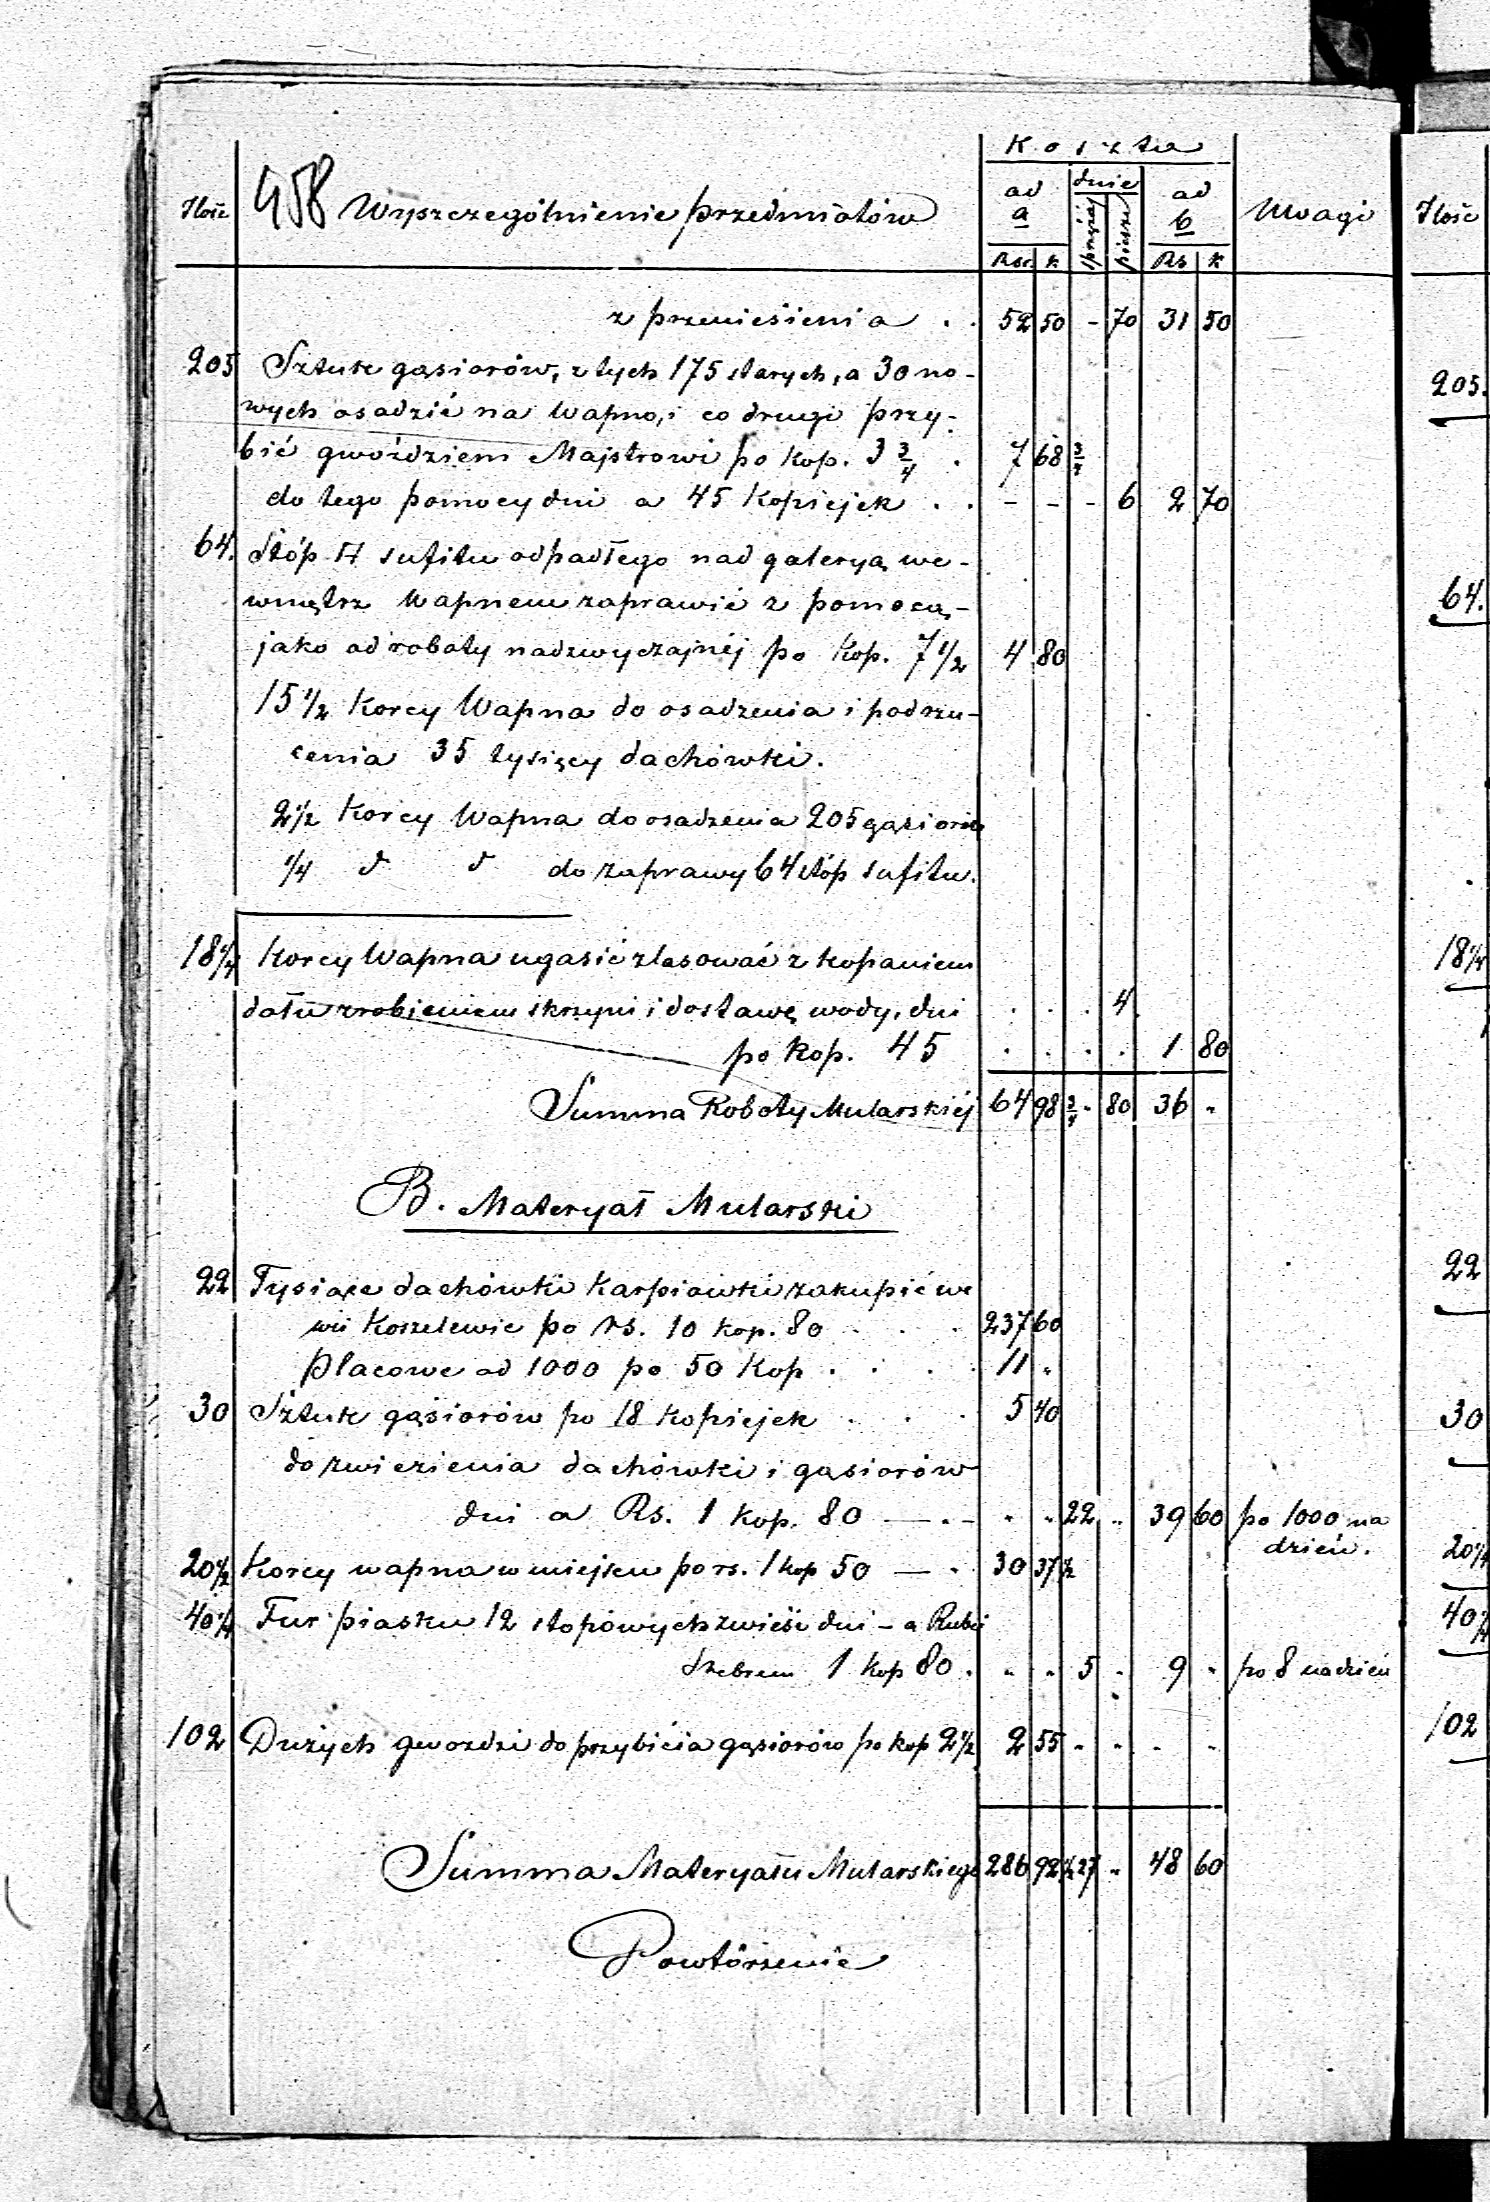 Koszta
Ilość 458 Wyszczególnienie przedmiotów ad a dnie ad b Uwagi Ilość
sprzęż. piesze
Rsr. k Rs k
z przeniesienia . . 52 50 - 70 31 50
205 Sztuk gąsiorów, z tych 175 starych, a 30 no-
wych osadzić na Wapno, i co drugi przy- 205.
bić gwóździem Majstrowi po kop. 3 3/4 . 7 68 3/4
do tego pomocy dni a 45 Kopiejek . . - - - 6 2 70
64. Stóp □ sufitu odpadłego nad galeryą we-
wnętrz Wapnem zaprawić z pomocą- 64.
jako od roboty nadzwyczajnéj po Kop. 7 1/2 4 80
15 1/2 Korcy Wapna do osadzenia i podrzu-
cenia 35 tysięcy dachówki.
2 1/2 Korcy Wapna do osadzenia 205 gąsiorów
1/4 d d do zaprawy 64 stóp sufitu.
18 1/4 Korcy Wapna ugasić zlasować z kopaniem 18 1/4
dołu zrobieniem skrzyni i dostawę wody, dni . . . 4
po kop. 45 . . . . 1 80
Summa Roboty Mularskiéj 64 98 3/4 - 80 36 "
B. Materyał Mularski
22 Tysiące dachówki Karpiówki zakupić we 22
wsi Koszelewie po rs. 10 kop. 80 . . . 237 60
Placowe od 1000 po 50 Kop . . . . 11 "
30 Sztuk gąsiorów po 18 Kopiejek . . . 5 40 30
do zwiezienia dachówki i gąsiorów
dni a Rs. 1 kop. 80 — . - " " 22 " 39 60 po 1000 na
dzień.
20 1/4 Korcy wapna w miejscu po rs. 1 kop 50 — . 30 37 1/2 20 1/4
40 1/4 Fur piasku 12 stopowych zwieść dni - a Rubli 40 1/4
Srebrem 1 kop 80 . " " 5 - 9 " po 8 na dzień
102 Dużych gwozdzi do przybicia gąsiorów po kop 2 1/2 2 55 " " " " 102
Summa Materyału Mularskiego 286 92 1/2 27 " 48 60
Powtórzenie